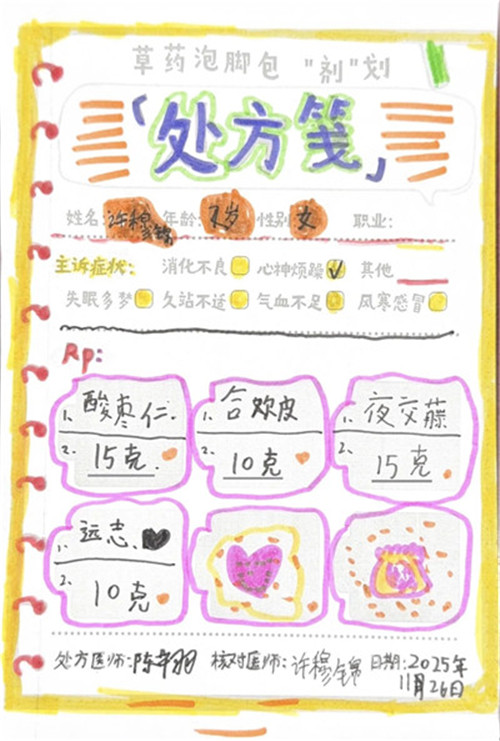 草药泡脚包 "剂"划
「处方笺」
姓名:许穆锦 年龄:7岁 性别女 职业:
主诉症状: 消化不良 心神烦躁✓ 其他
失眠多梦 久站不适 气血不足 风寒感冒
Rp:
1. 酸枣仁. 1. 合欢皮 1. 夜交藤
2. 15克. 2. 10克 2. 15克
1. 远志.
2. 10克
处方医师:陈芊羽 核对医师:许穆锦 日期:2025年
11月26日